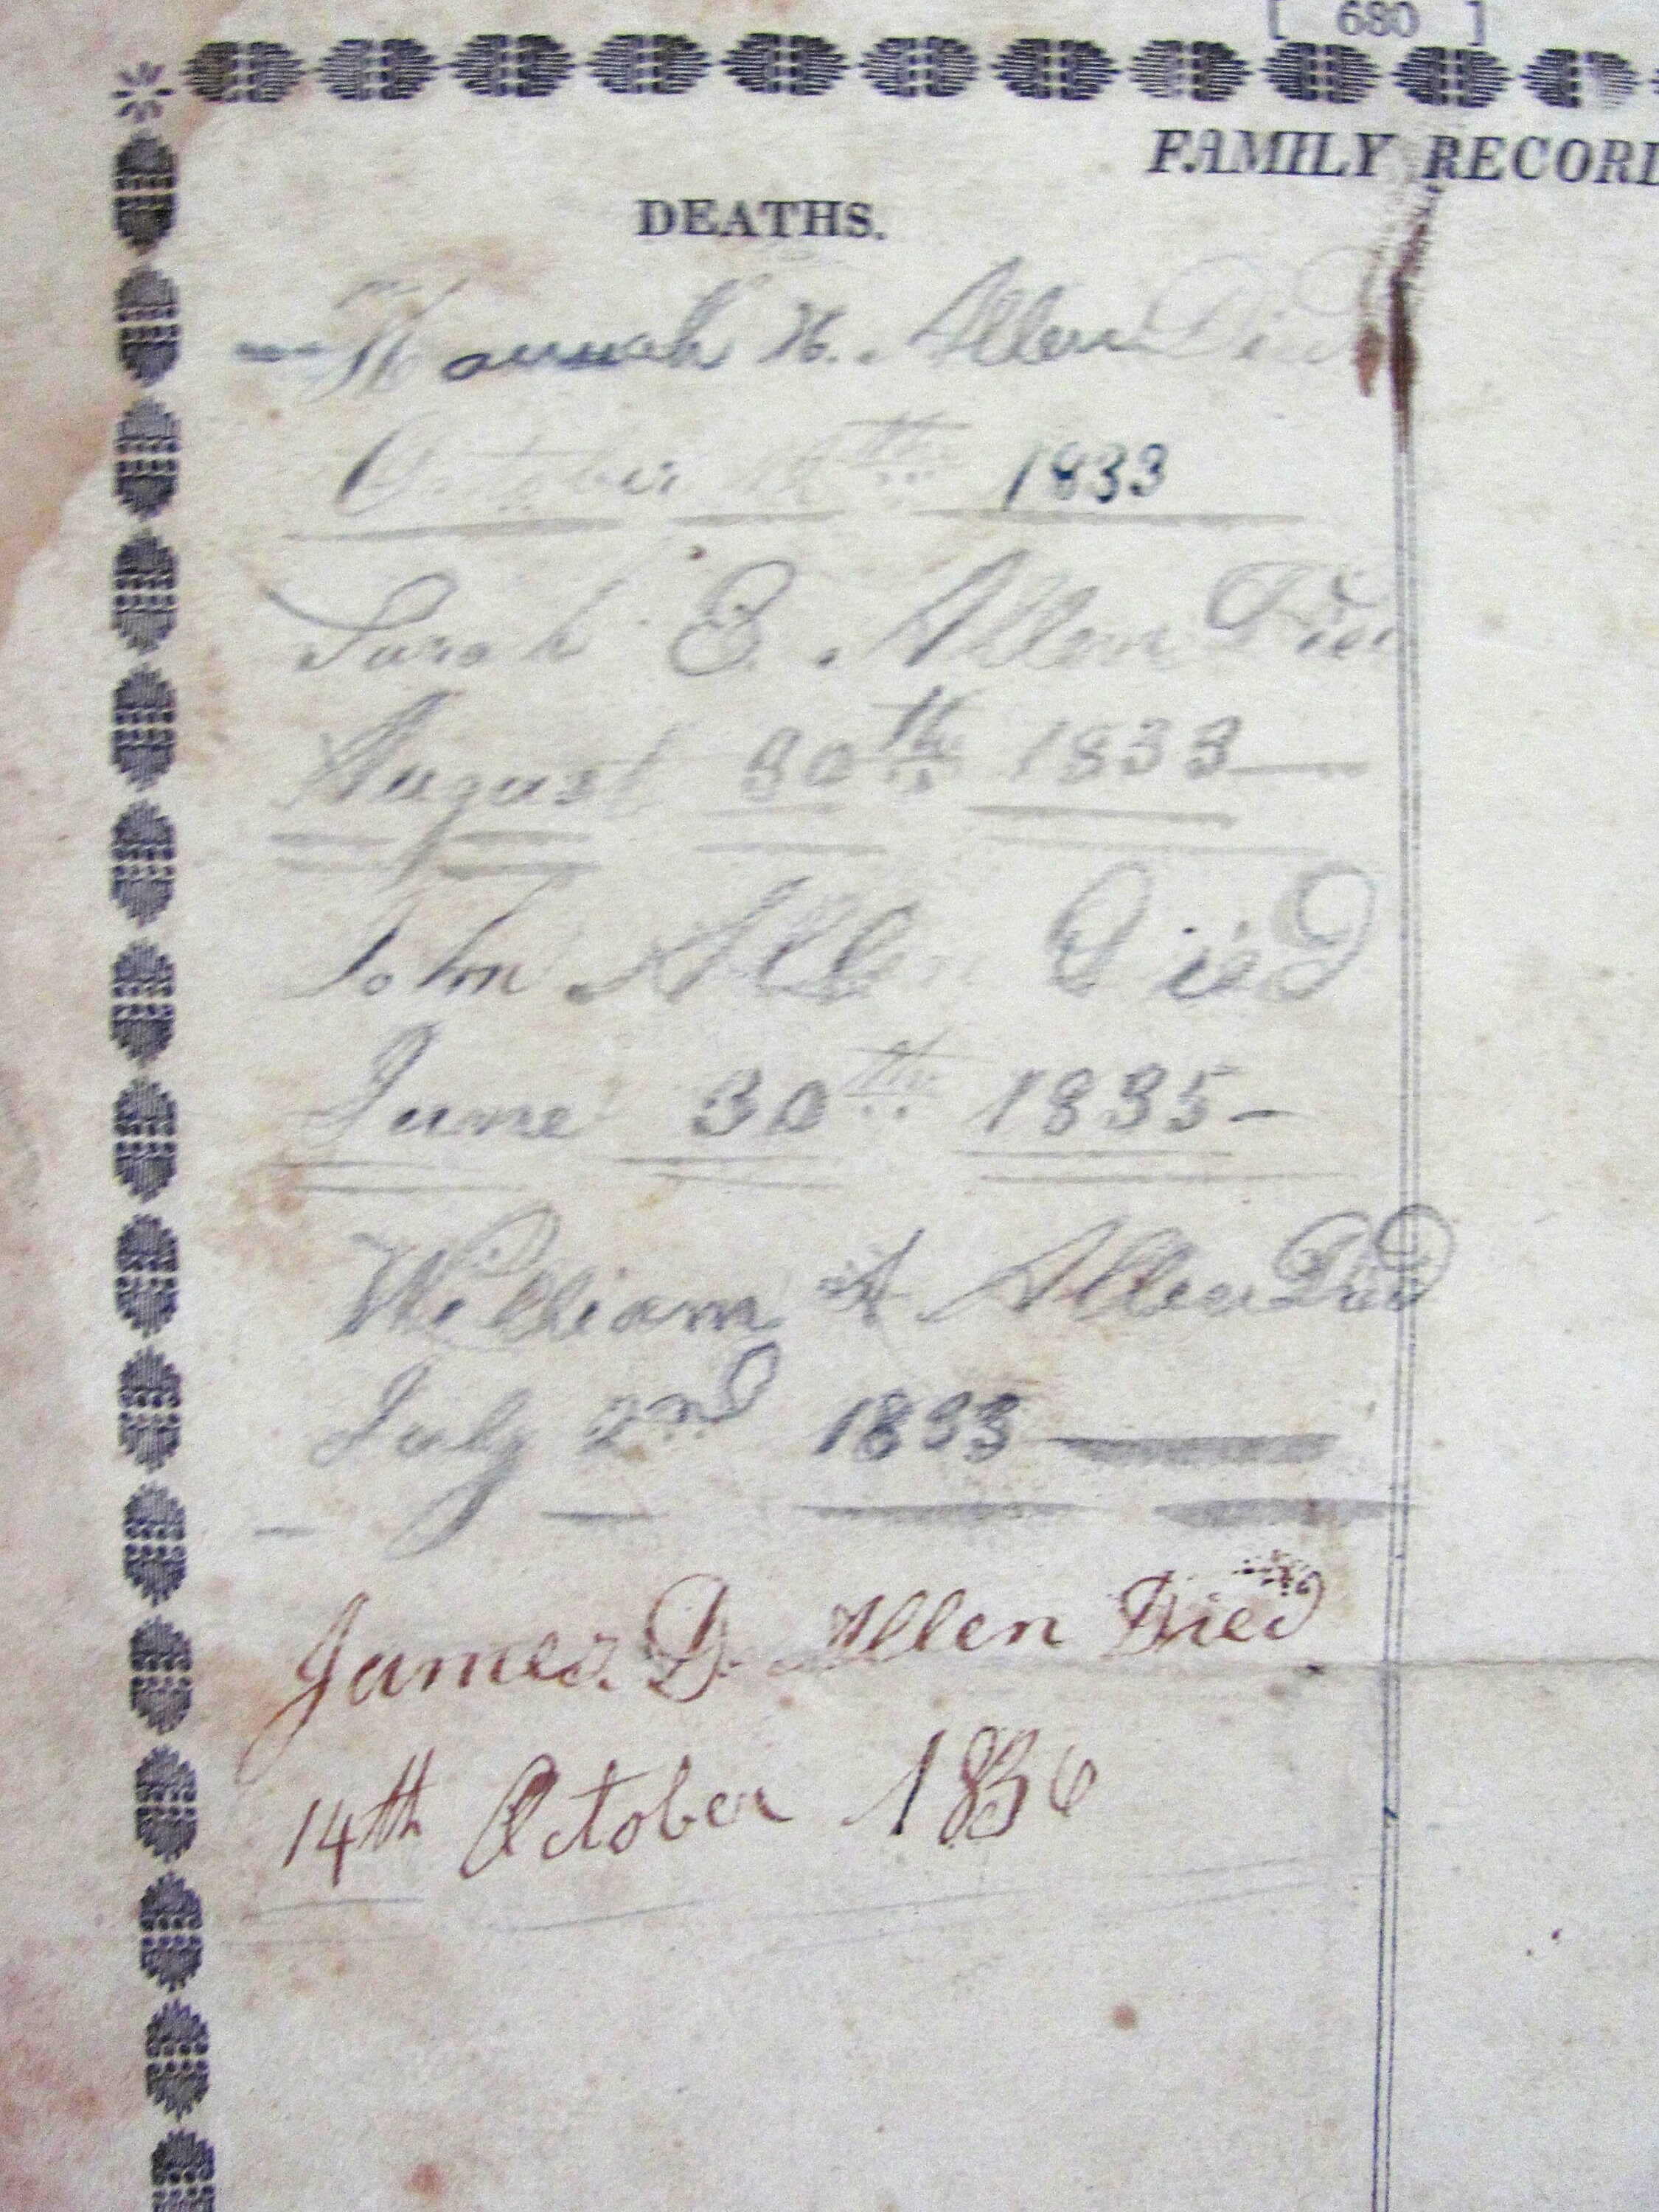 [ 680 ]
FAMILY RECORD
DEATHS.
Hannah H. Allen Died
October th 1833
Sarah E. Allen Died
August 30th 1833
John Allen Died
June 30th 1835-
William A Allen Died
July 2nd 1833
James. D. Allen Died
14th October 1836